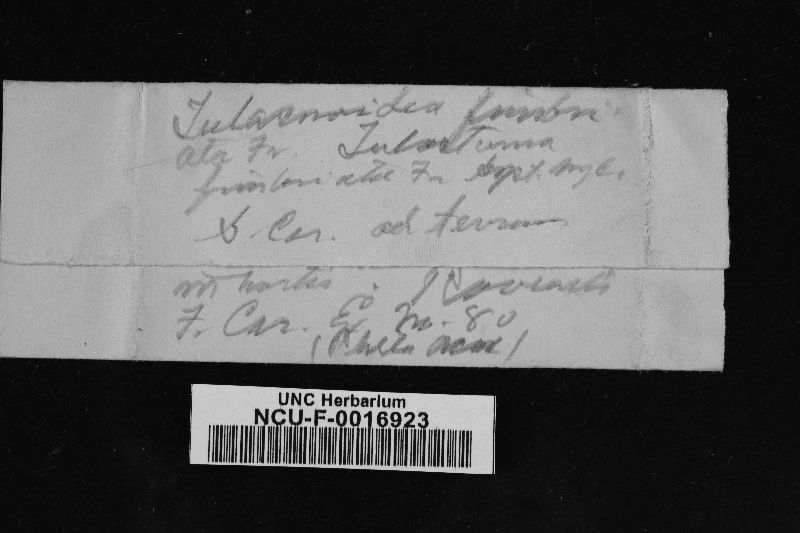 Tulasnoidea fimbri-
ata Fr. Tulostoma
fimbriata Fr. Syst. Myc.
S. Car. ad terram
in hortis. Ravenel
F. Car. Ex. No. 80
(Phila Acad)
UNC Herbarium
NCU-F-0016923